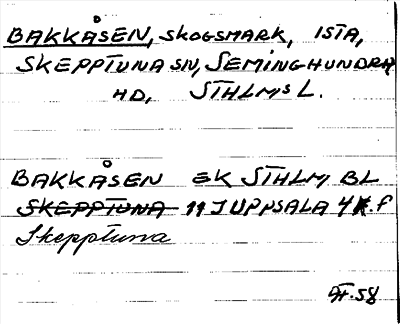 BAKKÅSEN, SKOGSMARK, ISTA,
SKEPPTUNA SN, SEMINGHUNDRA
HD, STHLMS L.
BAKKÅSEN EK STHLM BL
SKEPPTUNA 11 I UPPSALA 4 f
Skepptuna
58